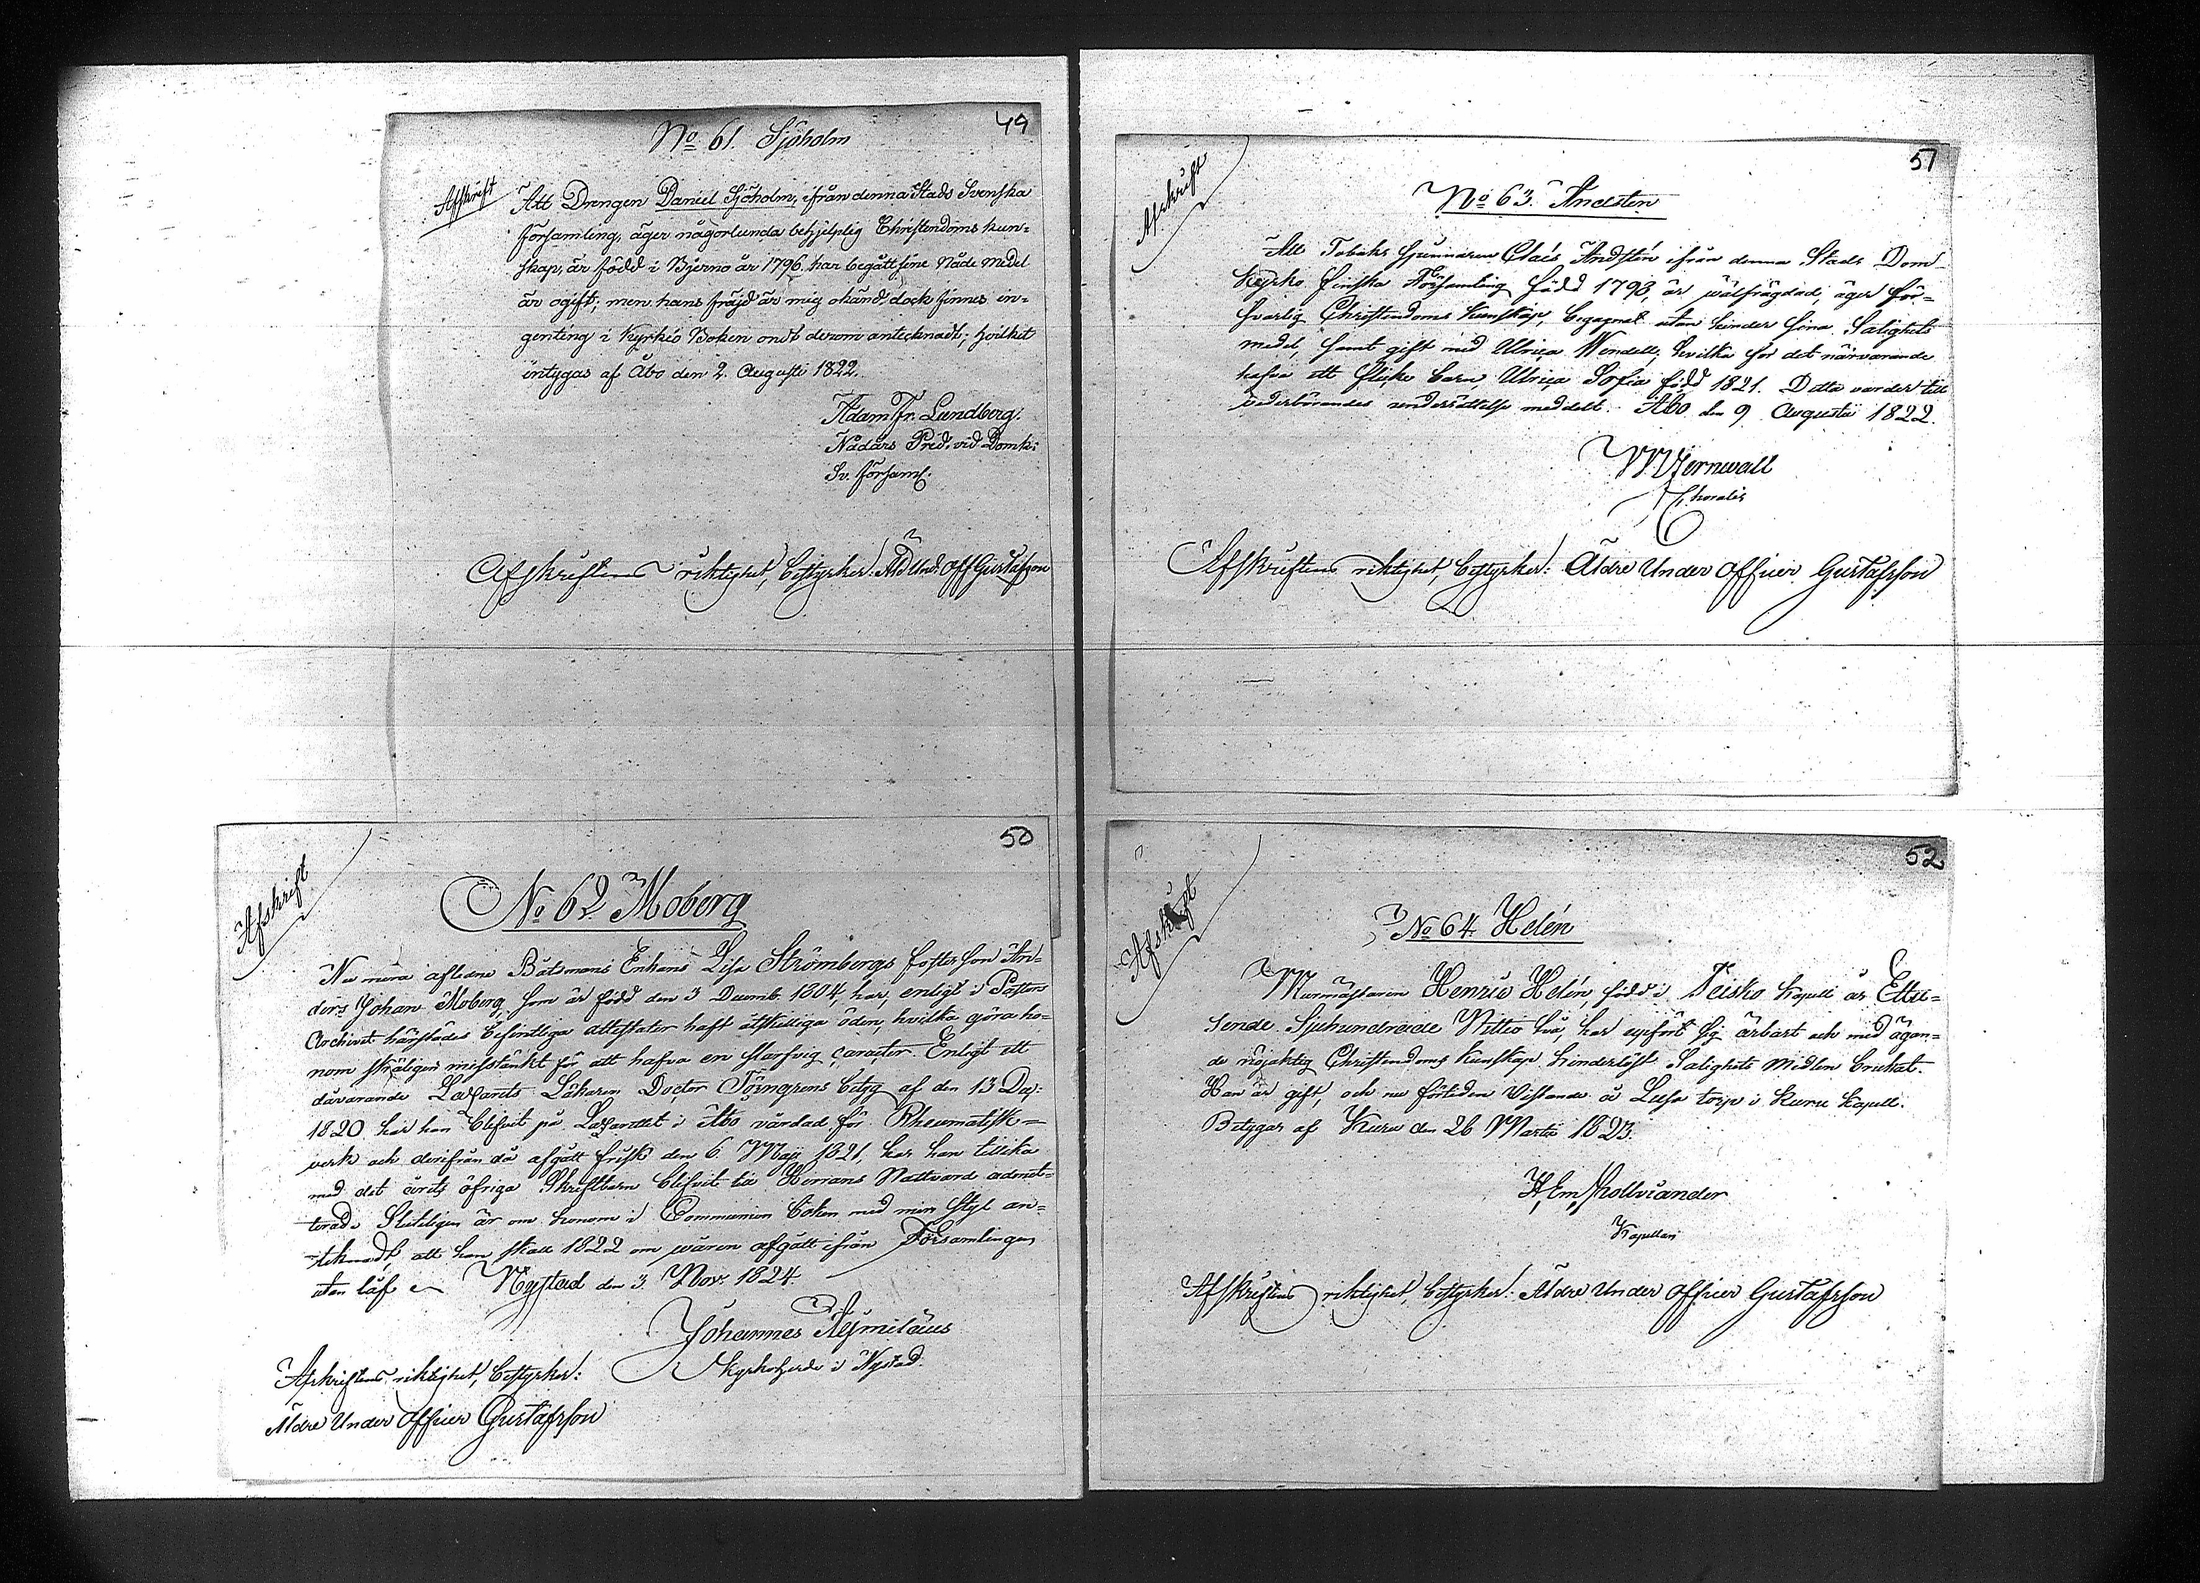 49
No 61. Sjöholm
Afskrift
Att Drengen Daniel Sjöholm, ifrån denna Stads Svenska
församling, äger någorlunda behjelplig Christendoms kun-
skap, är född i Bjerno år 1796. har begått sine Nåde medel
är ogift; men hans fräjd är mig okänd, dock finnes in-
genting i Kyrkio Boken ondt derom antecknadt; hvilket
intygas af Åbo den 2. Augusti 1822.
Adam Fr. Lundberg.
Nådårs Pred. vid Domk:
Sv. församl.
Afskriftens riktighet, bestyrker: Äld Und: Off Gustafsson
50
Afskrift
No 62 Moberg
Nu mera aflidne Båtsmans Enkans Lisa Strömbergs fosterson An-
ders Johan Moberg, som är född den 3 Decemb. 1804, har, enligt i Pastors
Archivet härstädes befintliga attestater haft åtskilliga öden, hvilka göra ho-
nom skäligen misstänkt för att hafva en slarfvig caracter. Enligt ett
dåvarande Lazarets Läkaren Doctor Törngrens betyg af den 13 Dec:
1820 har han blifvit på Lazarettet i Åbo vårdad för Rheumatisk-
verk och derifrån då afgått frisk den 6. Maij 1821, har han tillika
med det årets öfriga Skriftbarn blifvit till Herrans Nattvard admit-
terad. Slutligen är om honom i Communion Boken med min Styl an-
teknadt, att han skall 1822 om wåren afgått ifrån Församlingen
utan låf Nystad den 3. Nov. 1824
Johannes Aejmelæus
Kyrkoherde i Nystad.
Afskriftens riktighet, bestyrker:
Äldre Under Officer Gustafsson
51
Afskrift
No 63. Andsten
Att Tobaks Spinnaren Clais Andstén ifrån denna Stads Dom-
kyrko finska Församling född 1793, är wälfrägdad, äger för-
svarlig Christendoms kunskap, begagnat utan hinder sina Salighets
medel, samt gift med Ulrica Wendell, hvilka för det närvarande
hafva ett flicke barn Ulrica Sofia född 1821. Detta varder till
vederbörandes underrättelse meddelt. Åbo den 9 Augusti 1822.
W. Wernwall
Choralis
Afskriftens riktighet, bestyrker: Äldre Under Officer Gustafsson
52
Afskrift
No 64 Helén
Murmästaren Henric Helén född i Teisko Kapell år Ettu-
sende Sjuhundrade Nittio två, har uppfört sig ärbart och med ägan-
de nöjaktig Christendoms kunskap hinderlöst Salighets Medlen brukat.
Han är gift, och nu förtiden vistande å Lusa torp i Kuru Kapell.
Betygar af Kuru den 26 Martii 1823.
H. Em. Hollviander
Kapellan
Afskriftens riktighet, bestyrker: Äldre Under Officer Gustafsson